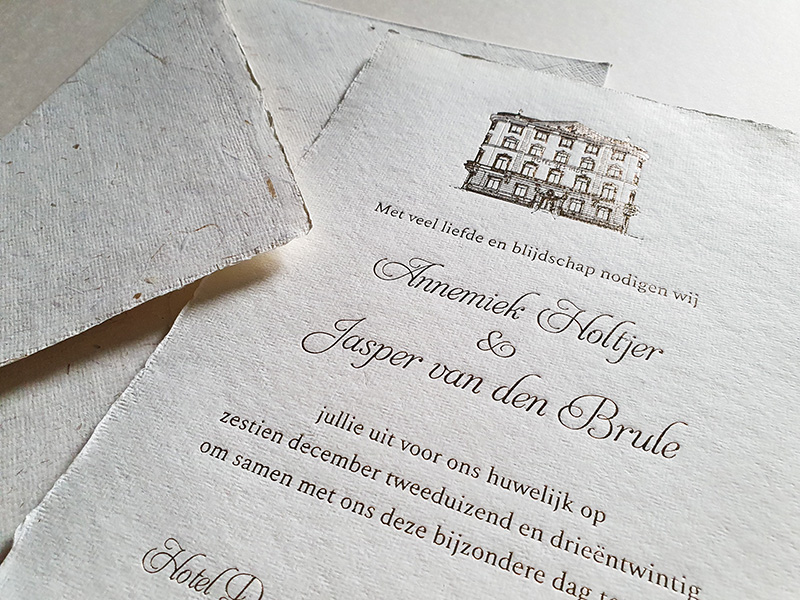 Met veel liefde en blijdschap nodigen wij
Annemiek Holtjer
&
Jasper van den Brule
jullie uit voor ons huwelijk op
zestien december tweeduizend en drieëntwintig
om samen met ons deze bijzondere dag
Hotel